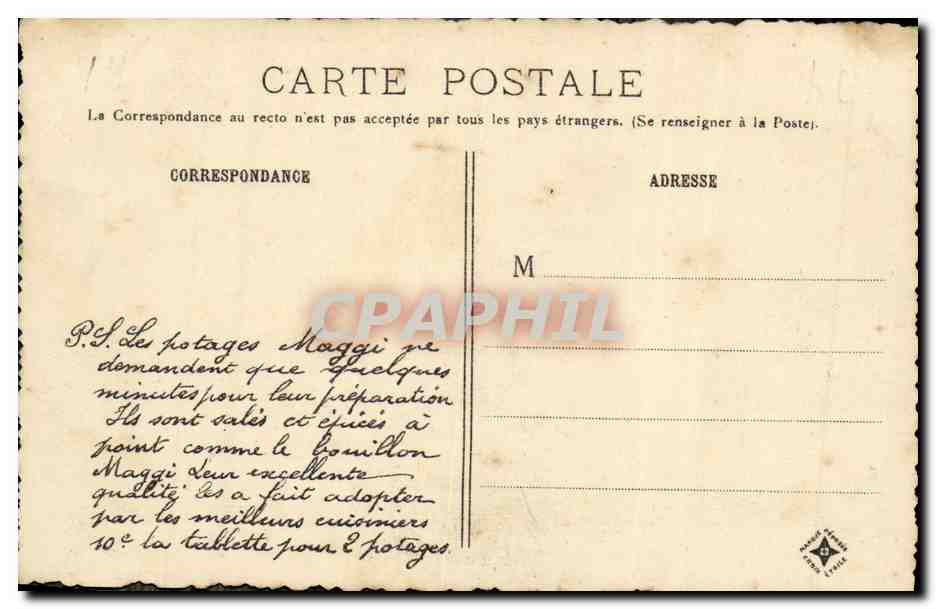 CARTE POSTALE
La Correspondance au recto n'est pas acceptée par tous les pays étrangers. (Se renseigner à la Poste).
CORRESPONDANCE
ADRESSE
M
CPAPHIL
P.S. Les potages Maggi ne
demandent que quelques
minutes pour leur préparation
Ils sont salés et épicés à
point comme le bouillon
Maggi Leur excellente
qualité les a fait adopter
par les meilleurs cuisiniers
10c la tablette pour 2 potages.
MARQUE DÉPOSÉE